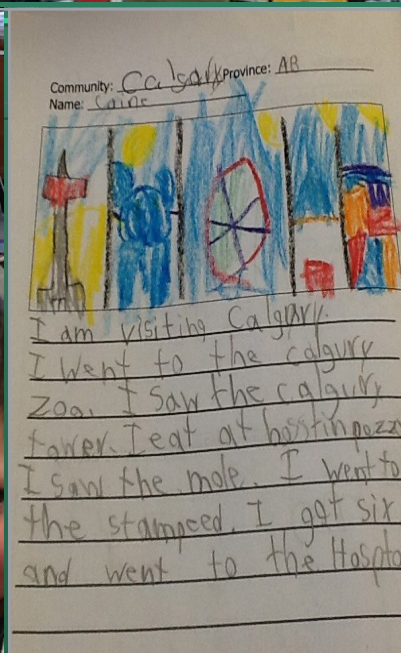 Community: Calgary Province: AB
Name: Caine
I am visiting Calgary.
I went to the calgury
Zoo. I saw the calgury
tower. I eat at bosstin pozz
I saw the mole. I went to
the stampeed. I got six
and went to the Hospto